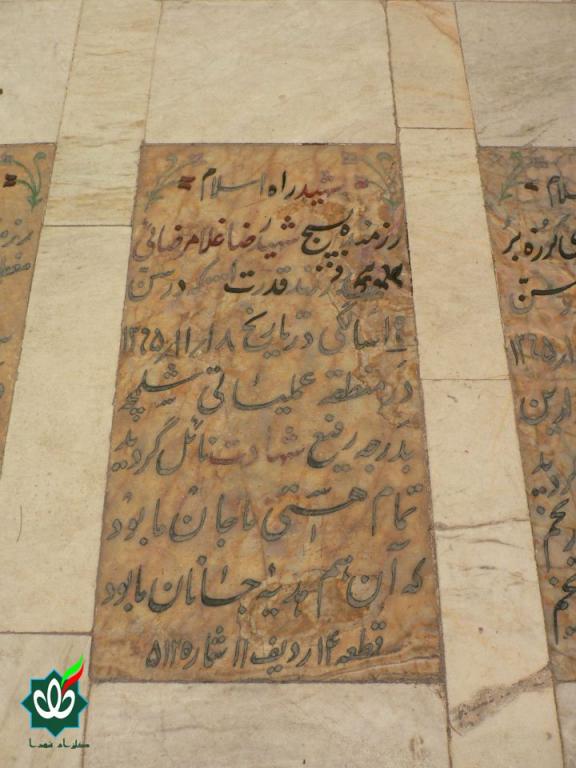 شهید راه اسلام
رزمنده بسیج شهید رضا غلامرضائی
فرزند قدرت اله که در سن
۱۹ سالگی در تاریخ ۱۳۶۵/۱۱/۸
در منطقه عملیاتی شلمچه
بدرجه رفیع شهادت نائل گردید
تمام هستی ما جان ما بود
که آن هم هدیه جانان ما بود
قطعه ۱۴ ردیف ۱۱ شماره ۵۱۲۵
گلزار شهدا